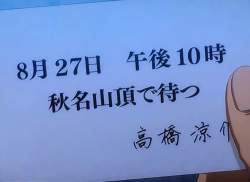 8月27日 午後10時
秋名山頂で待つ
高橋涼介